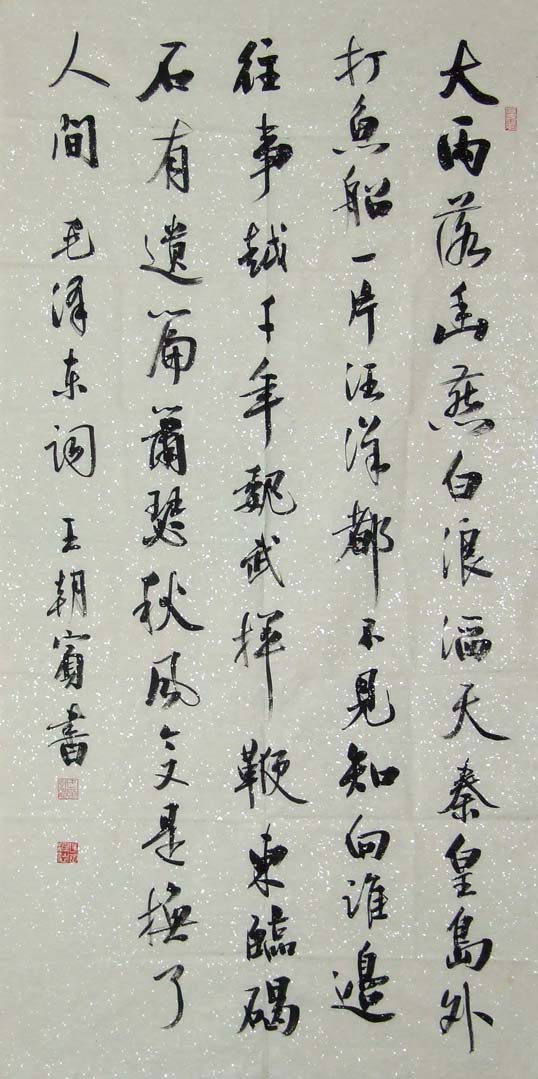 大雨落幽燕白浪滔天秦皇島外
打魚船一片汪洋都不見知向誰邊
往事越千年魏武揮鞭東臨碣
石有遺篇蕭瑟秋風今又是換了
人間 毛泽东詞 王朝賓書